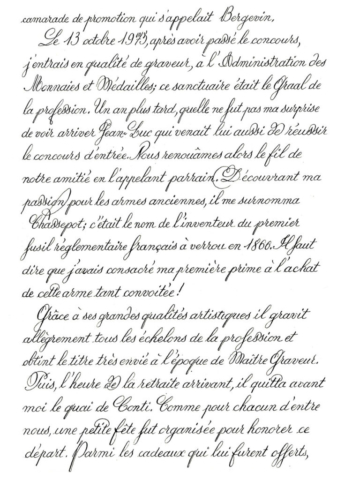 camarade de promotion qui s'appelait Bergevin.
Le 13 octobre 1973, après avoir passé le concours,
j'entrais en qualité de graveur, à l'Administration des
Monnaies et Médailles; ce sanctuaire était le Graal de
la profession. Un an plus tard, quelle ne fut pas ma surprise
de voir arriver Jean-Luc qui venait lui aussi de réussir
le concours d'entrée. Nous renouâmes alors le fil de
notre amitié en l'appelant parrain. Découvrant ma
passion pour les armes anciennes, il me surnomma
Chassepot; c'était le nom de l'inventeur du premier
fusil réglementaire français à verrou en 1866. Il faut
dire que j'avais consacré ma première prime à l'achat
de cette arme tant convoitée!
Grâce à ses grandes qualités artistiques il gravit
allègrement tous les échelons de la profession et
obtint le titre très envié à l'époque de Maître Graveur.
Puis, l'heure de la retraite arrivant, il quitta avant
moi le quai de Conti. Comme pour chacun d'entre
nous, une petite fête fut organisée pour honorer ce
départ. Parmi les cadeaux qui lui furent offerts,